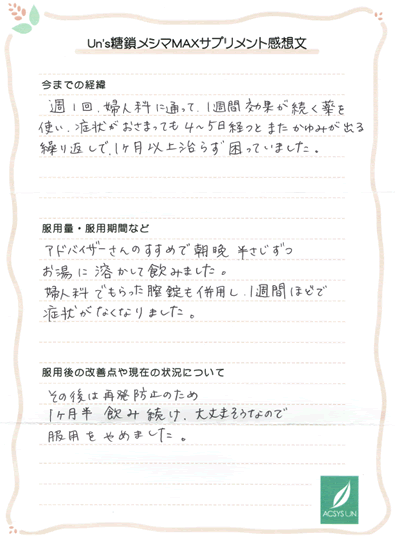 Un's糖鎖メシマMAXサプリメント感想文
今までの経緯
週1回、婦人科に通って、1週間効果が続く薬を
使い、症状がおさまっても4～5日経つとまたかゆみが出る
繰り返しで、1ヶ月以上治らず困っていました。
服用量・服用期間など
アドバイザーさんのすすめで朝晩 半さじずつ
お湯に溶かして飲みました。
婦人科でもらった膣錠も併用し、1週間ほどで
症状がなくなりました。
服用後の改善点や現在の状況について
その後は再発防止のため
1ヶ月半 飲み続け、大丈夫そうなので
服用をやめました。
ACSYS UN